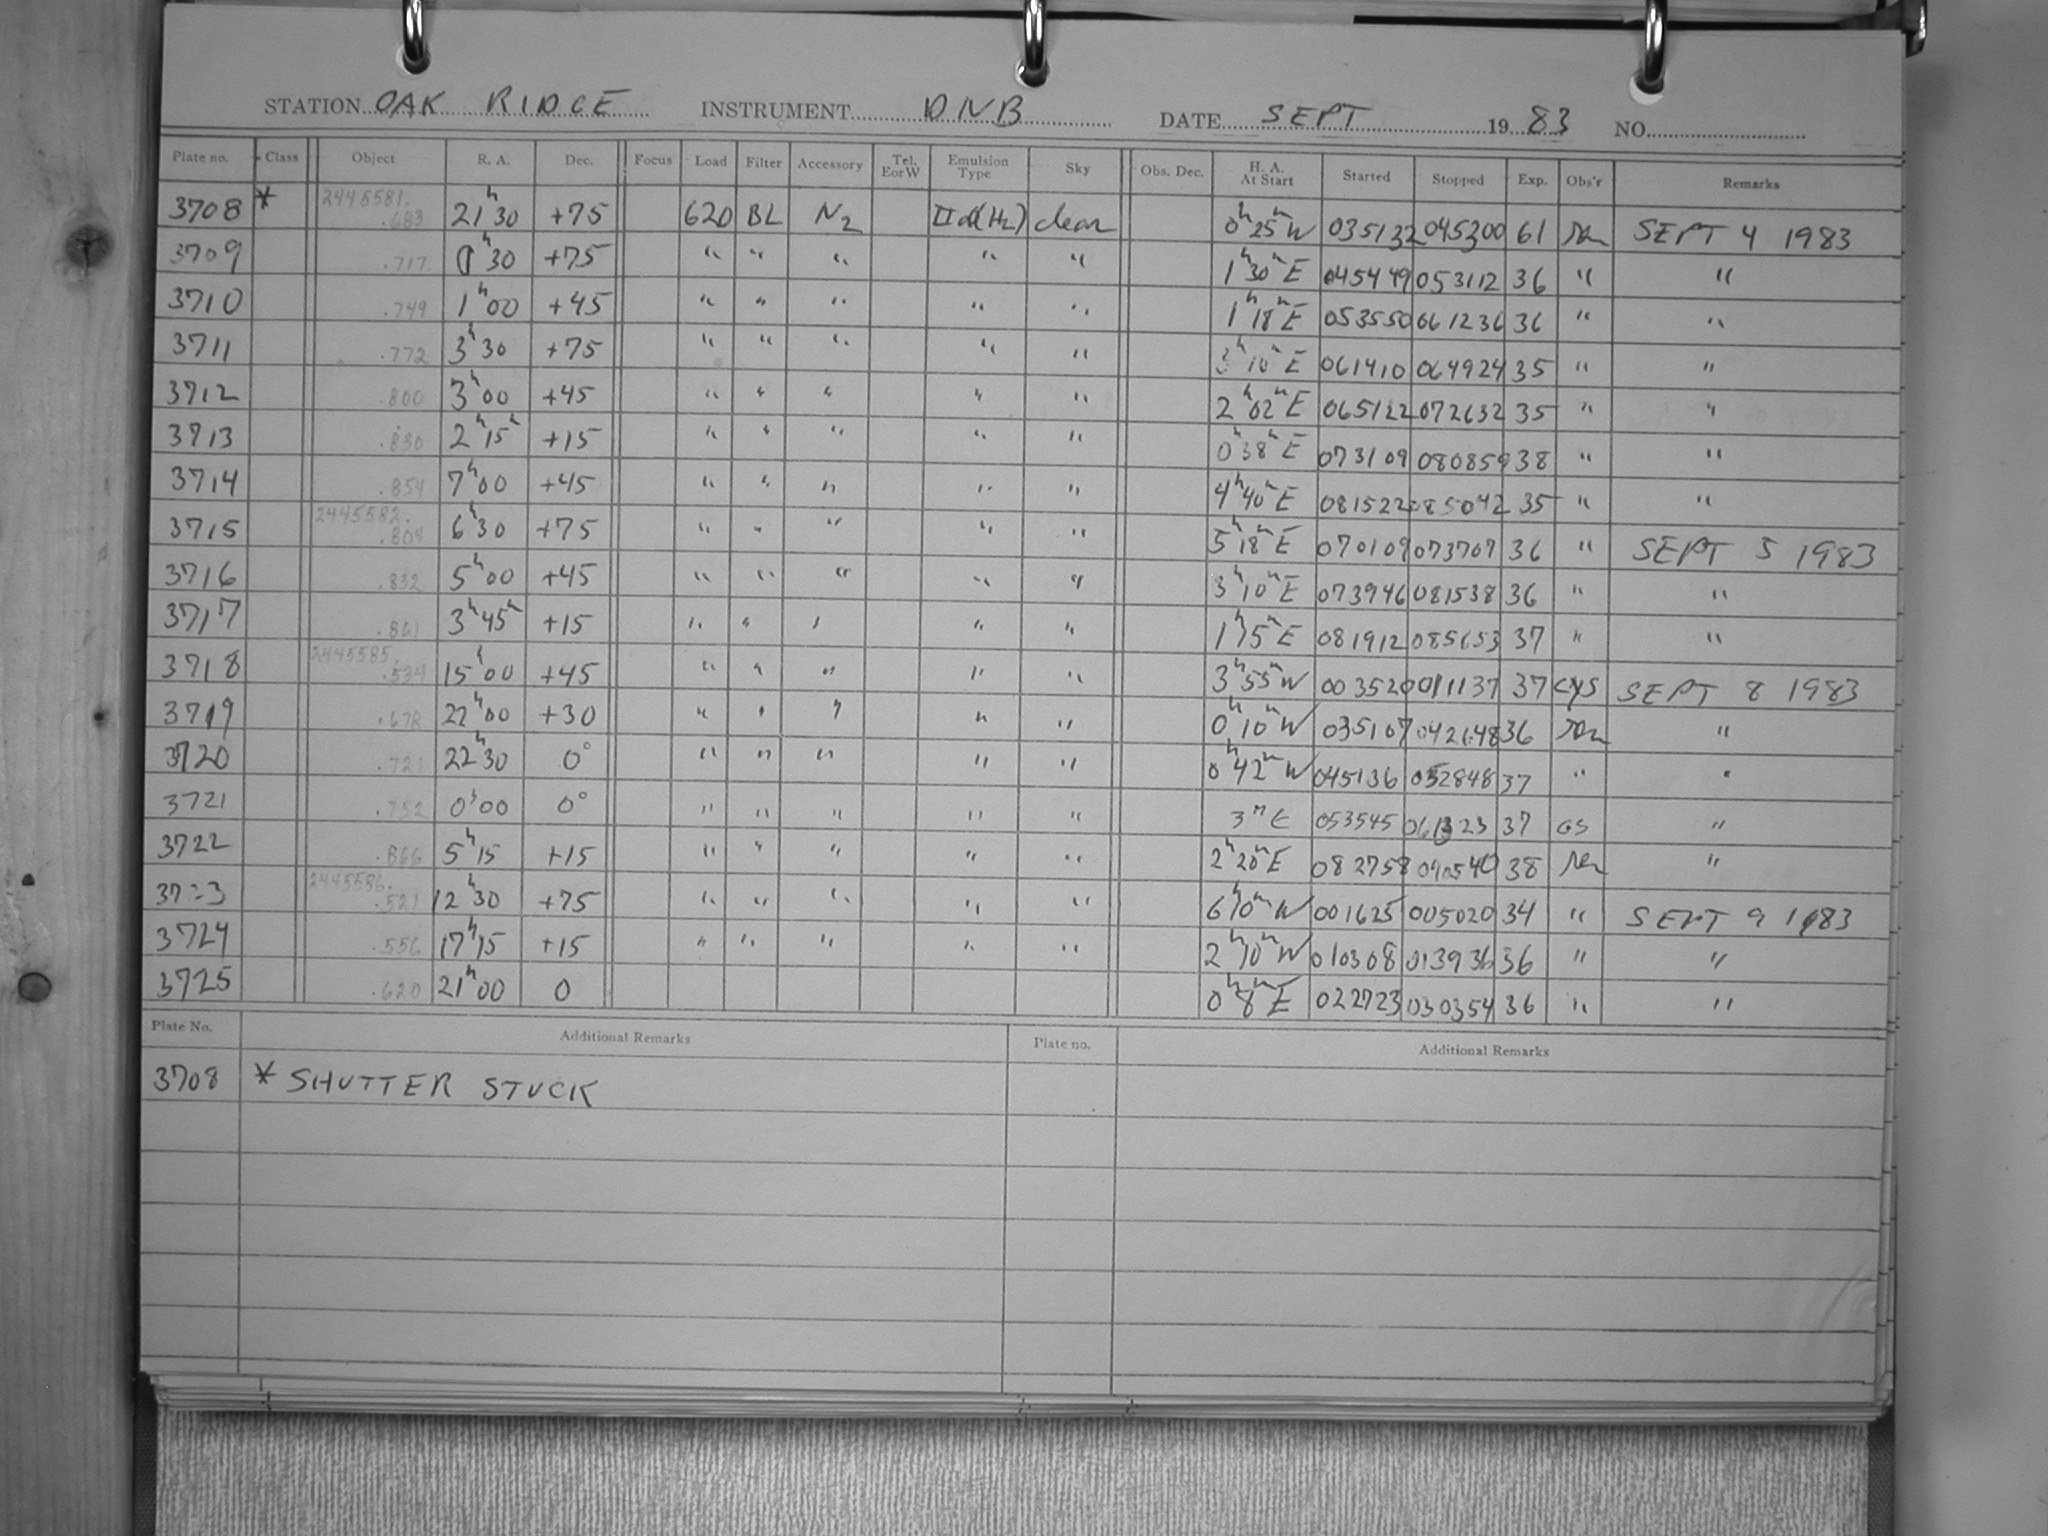 STATION OAK RIDGE INSTRUMENT DNB DATE SEPT 1983 NO.
Plate no. Class Object R. A. Dec. Focus Load Filter Accessory Tel. E or W Emulsion Type Sky Obs. Dec. H. A. At Start Started Stopped Exp. Obs'r Remarks
3708 * 2445581. .683 21h 30 +75 620 BL N2 IIa(H2) clear 0h 25m W 035132 045300 61 SEPT 4 1983
3709 .717 0h 30 +75 " " " " " 1h 30m E 045449 053112 36 " "
3710 .749 1h 00 +45 " " " " " 1h 18m E 053550 061236 36 " "
3711 .772 3h 30 +75 " " " " " 3h 10m E 061410 064924 35 " "
3712 .800 3h 00 +45 " " " " " 2h 02m E 065122 072632 35 " "
3713 .830 2h 15m +15 " " " " " 0h 38m E 073109 080859 38 " "
3714 .854 7h 00 +45 " " " " " 4h 40m E 081522 085042 35 " "
3715 2445582. .809 6h 30 +75 " " " " " 5h 18m E 070109 073707 36 " SEPT 5 1983
3716 .832 5h 00 +45 " " " " " 3h 10m E 073946 081538 36 " "
3717 .861 3h 45m +15 " " " " " 1h 15 E 081912 085653 37 " "
3718 2445585. .534 15h 00 +45 " " " " " 3h 55m W 003520 011137 37 CYS SEPT 8 1983
3719 .672 22h 00 +30 " " " " " 0h 10m W 035107 042648 36 "
3720 .721 22h 30 0° " " " " " 0h 42m W 045136 052848 37 " "
3721 .752 0h 00 0° " " " " " 3m E 053545 061323 37 GS "
3722 .866 5h 15 +15 " " " " " 2h 20m E 082758 090540 38 "
3723 2445586. .521 12h 30 +75 " " " " " 6h 10m W 001625 005020 34 " SEPT 9 1983
3724 .556 17h 15 +15 " " " " " 2h 10m W 010308 013936 36 " "
3725 .620 21h 00 0 0h 8m E 022723 030354 36 " "
Plate No. Additional Remarks Plate no. Additional Remarks
3708 * SHUTTER STUCK